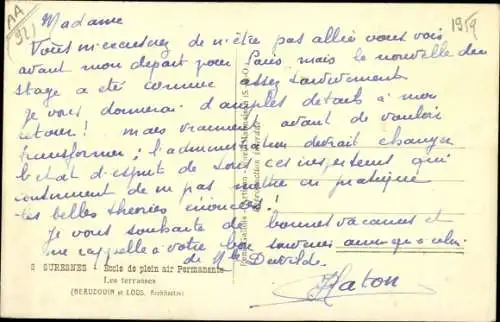 AA
92)
1959
Madame
Vous m'excuserez de n'être pas allée vous voir
avant mon départ pour Paris mais la nouvelle du
stage a été connue assez tardivement
Je vous donnerai d'amples détails à mon
retour ! mais vraiment avant de vouloir
transformer, l'administration devrait changer
l'état d'esprit de tous ces inspecteurs qui
continuent de ne pas mettre en pratique
les belles théories énoncées !
Je vous souhaite de bonnes vacances et
me rappelle à votre bon souvenir ainsi qu'à celui
de Mlle
Katon
SURESNES - Ecole de plein air Permanente
Les terrasses
(BEAUDOUIN et LODS, Architectes)
Reproduction interdite